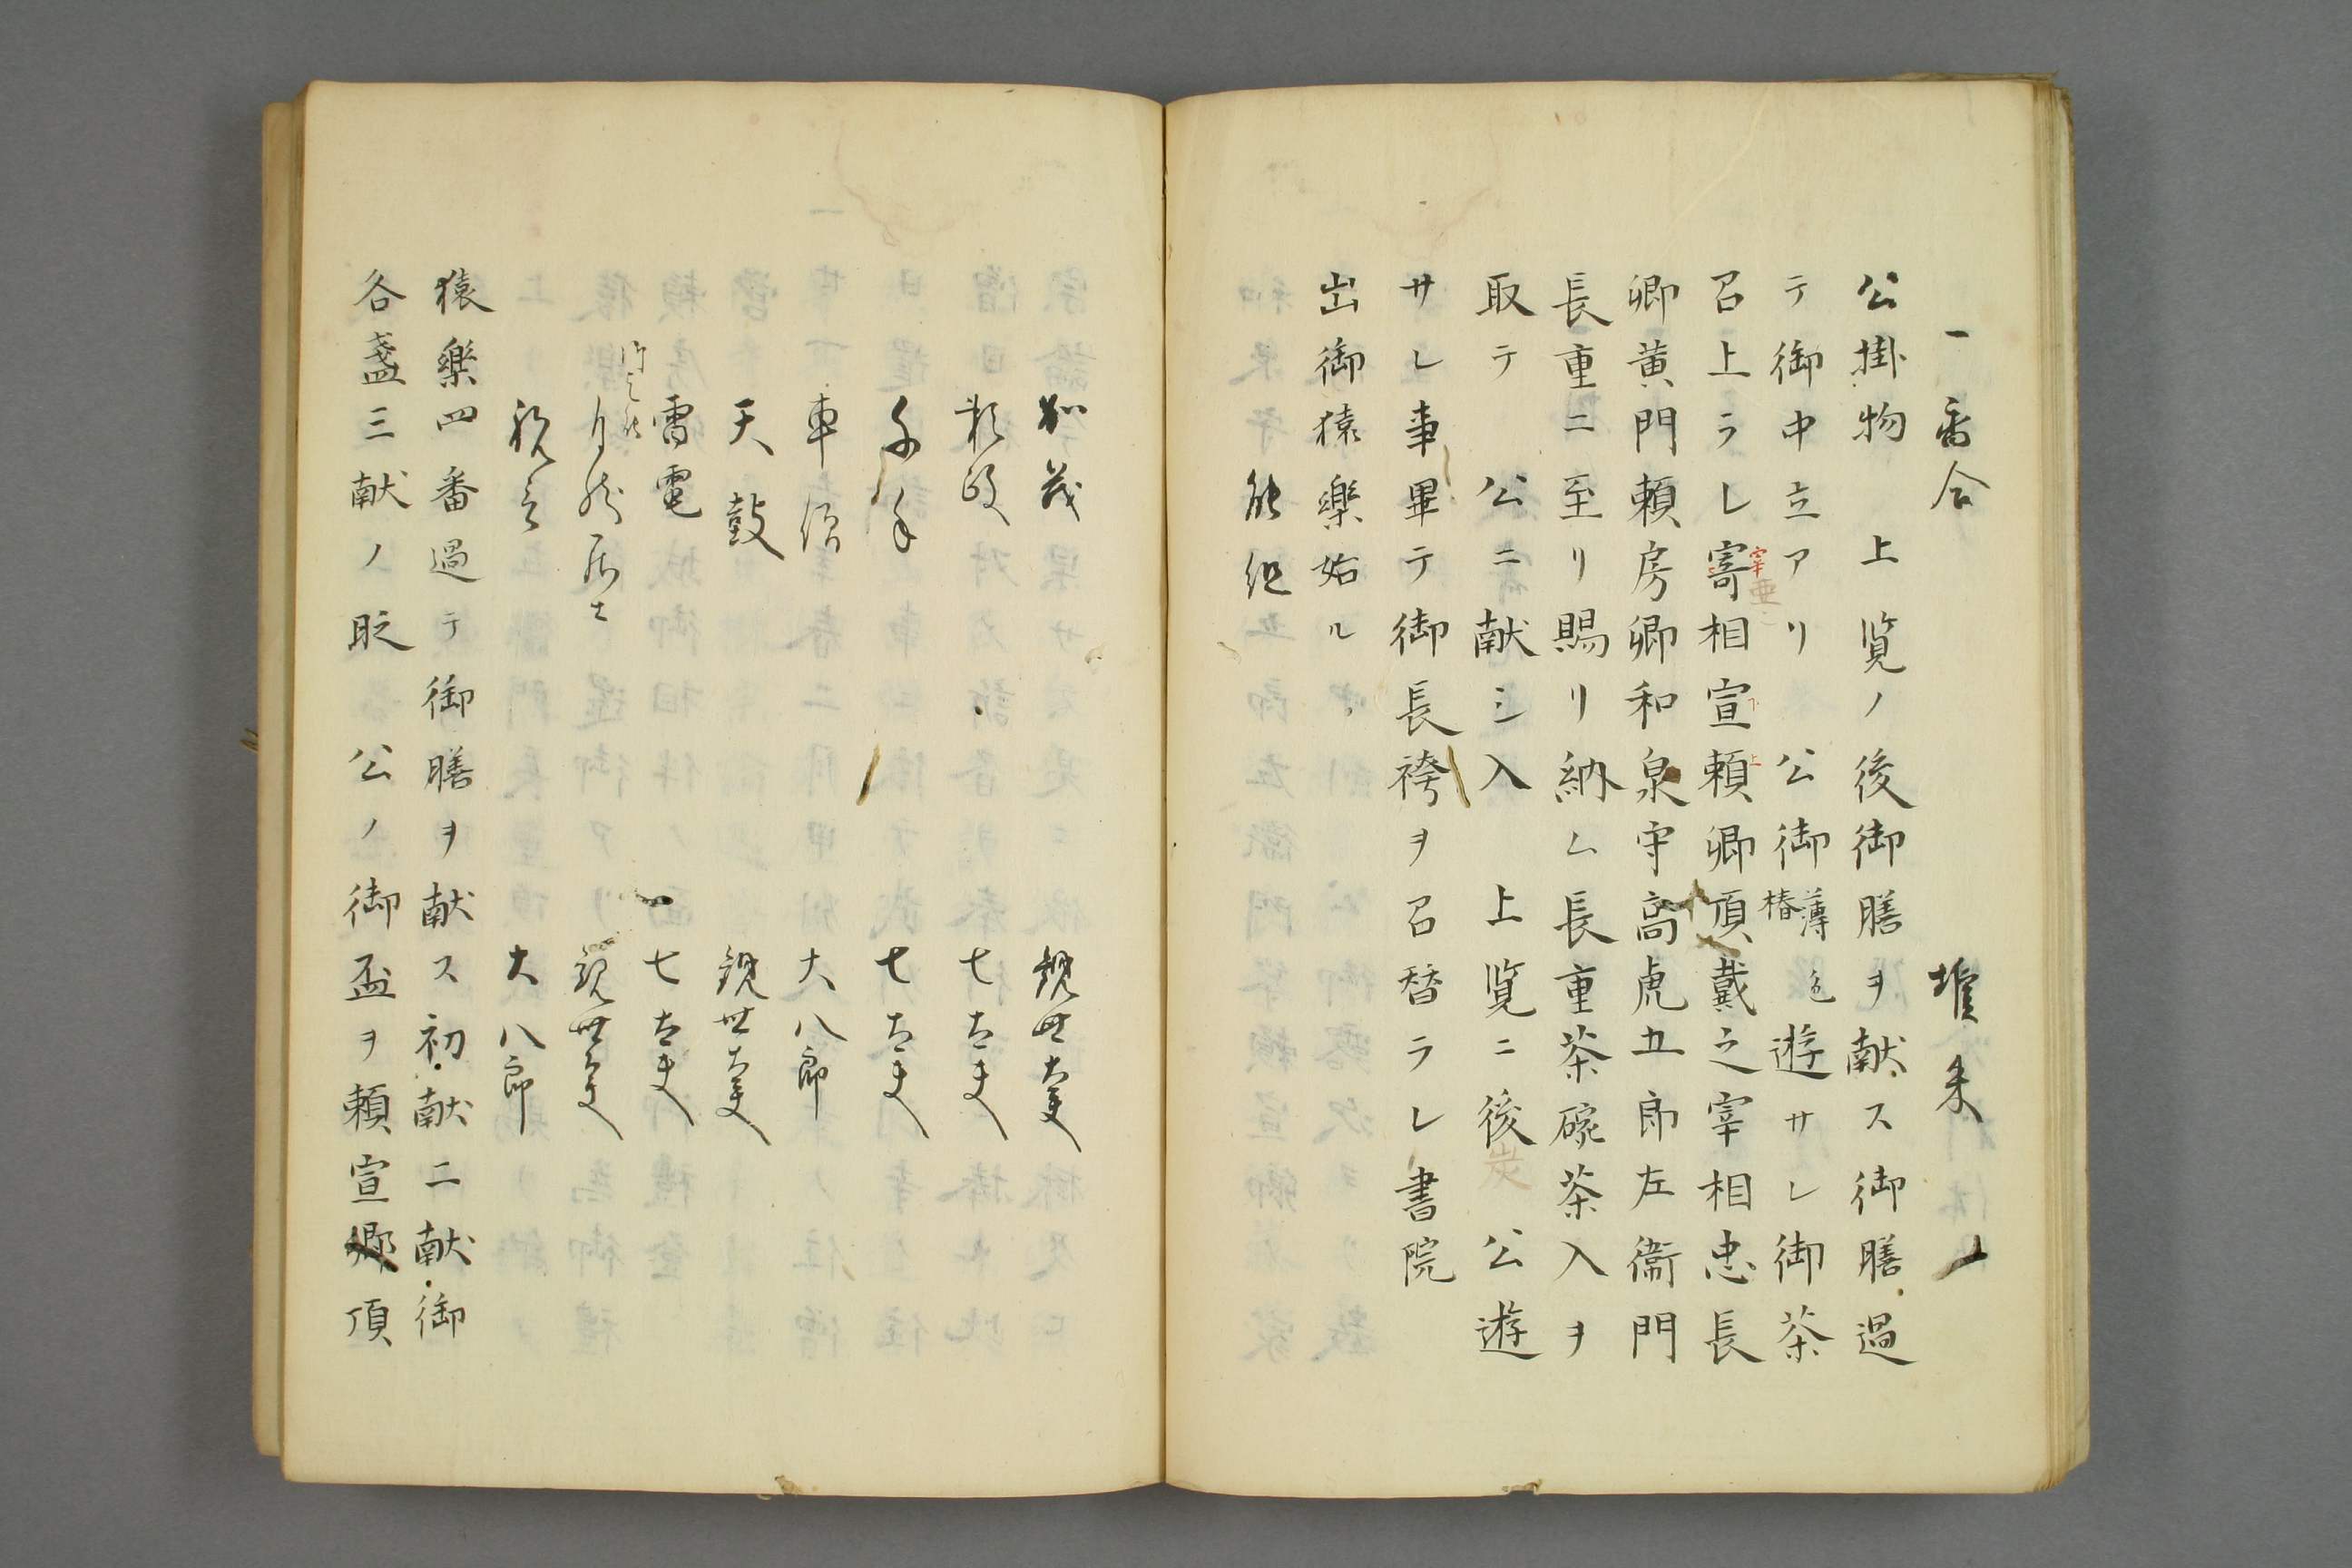 一香合　堆朱
公掛物　上覧ノ後御膳ヲ献ス御膳過
テ御中立アリ　公御薄色椿遊サレ御茶
召上ラレ寄相宣頼卿頂戴之宰相忠長
宰
卿黄門頼房卿和泉守高虎五郎左衛門
長重ニ至リ賜リ納ム長重茶碗茶入ヲ
取テ　公ニ献シ入　上覧ニ後　公遊
炭
サレ事畢テ御長袴ヲ召替ラレ書院
出御猿樂始ル
能組
加茂　観世大夫
頼政　七大夫
千手　七大夫
車僧　大八郎
天鼓　観世大夫
雷電　七大夫
自然居士　観世大夫
祝言　大八郎
猿樂四番過テ御膳ヲ献ス初献二献御
各盞三献ノ時　公ノ御盃ヲ頼宣卿頂